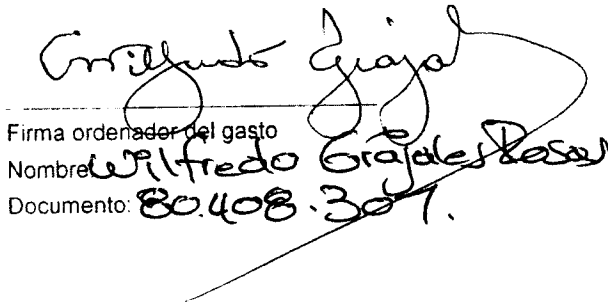 Wilfredo Grajal
Firma ordenador del gasto
Nombre Wilfredo Grajales Rosas
Documento: 80.408.307.